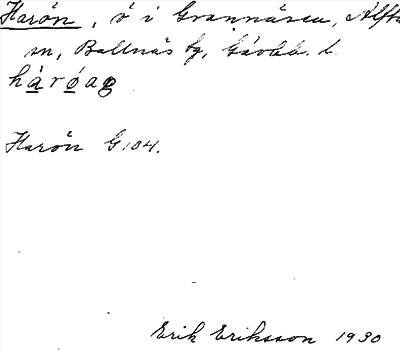 Harön, ö i Grannäsen, Alfta
sn, Bollnäs tg, Gävleb. l.
hàróag
Harön G:104.
Erik Eriksson 1930